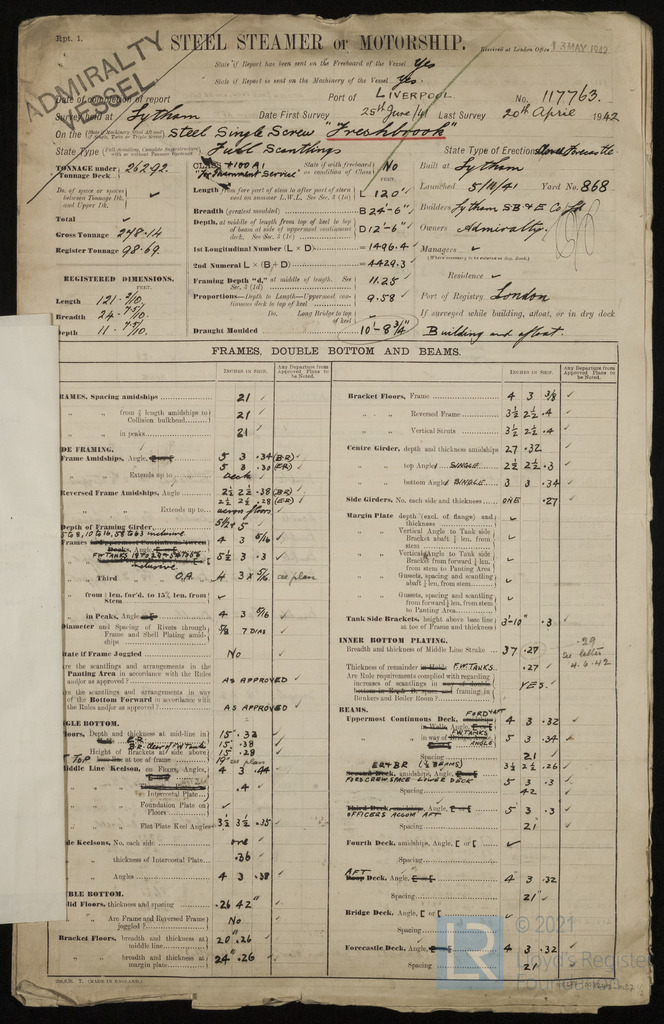 Rpt. 1.
ADMIRALTY VESSEL
STEEL STEAMER or MOTORSHIP.
Received at London Office 13 MAY 1942
State if Report has been sent on the Freeboard of the Vessel Yes
State if Report is sent on the Machinery of the Vessel Yes.
Date of completion of report Port of LIVERPOOL No. 117763.
Survey held at Lytham Date First Survey 25th June/41 Last Survey 20th April 1942
On the Steel Single Screw "Freshbrook"
State Type Full Scantlings State Type of Erections
TONNAGE under Tonnage Deck 262.92. CLASS +100A1 State if with freeboard as condition of Class No Built at Lytham
"For Government Service"
Length L 120' Launched 5/11/41 Yard No. 868
No. of space or spaces between Tonnage Dk. and Upper Dk.
Breadth (greatest moulded) B 24'-6" Builders Lytham S.B. & E. Co Ltd
Total
Depth, at middle of length from top of keel to top of beam at side of uppermost continuous deck. See Sec. 3 (1c) D 12'-6" Owners Admiralty
Gross Tonnage 278.14
1st Longitudinal Number (L × D) = 1496.4 Managers
Register Tonnage 98.69.
2nd Numeral L × (B + D) = 4429.3
REGISTERED DIMENSIONS.
FEET.
Framing Depth "d," at middle of length. See Sec. 3 (1d) 11.25 Residence
Length 121.2/10.
Proportions—Depth to Length—Uppermost continuous deck to top of keel 9.58 Port of Registry London
Breadth 24.
Do. Long Bridge to top of keel If surveyed while building, afloat, or in dry dock
Depth 11.
Draught Moulded 10'-8 3/4" Building and afloat.
FRAMES, DOUBLE BOTTOM AND BEAMS.
INCHES IN SHIP. Any Departure from Approved Plans to be Noted.
RAMES, Spacing amidships 21
" " from 3/5 length amidships to Collision bulkhead 21
" " in peaks 21
DE FRAMING.
Frame Amidships, Angle, 5 3 .34 (BR)
5 3 .30 (ER)
" " Extends up to deck
Reversed Frame Amidships, Angle 2½ 2½ .38 (BR)
2½ 2½ .28 (ER)
" " Extends up to across floors
Depth of Framing Girder 5½ + 5
5 to 8, 10 to 16, 58 to 63 inclusive
Frames 4 3 5/16
Deck, Angle
inclusive 5½ 3 .3
" Third O.A. 4 3 × 5/16 see plan
" from ¼ len. for'd. to 15% len. from Stem
" in Peaks, Angle 4 3 5/16
Diameter and Spacing of Rivets through Frame and Shell Plating amidships 7/8 7 DIAS
State if Frame Joggled No
re the scantlings and arrangements in the Panting Area in accordance with the Rules and/or as approved? AS APPROVED
re the scantlings and arrangements in way of the Bottom Forward in accordance with the Rules and/or as approved? AS APPROVED
GLE BOTTOM.
loors, Depth and thickness at mid-line in 15" .32
15" .38
Height of Brackets at side above 15" .28
TOP at toe of frame 19" see plan
iddle Line Keelson, on Floors, Angles, 4 3 .44
Intercostal Plate .4
" " Foundation Plate on Floors
" " Flat Plate Keel Angles 3½ 3½ .35
de Keelsons, No. each side one
" thickness of Intercostal Plate .36
" Angles 4 3 .38
UBLE BOTTOM.
lid Floors, thickness and spacing .26 42"
" Are Frame and Reversed Frame joggled? No
Bracket Floors, breadth and thickness at middle line 20" .26
" breadth and thickness at margin plate 24" .26
INCHES IN SHIP. Any Departure from Approved Plans to be Noted.
Bracket Floors, Frame 4 3 3/8
" " Reversed Frame 3½ 2½ .4
" " Vertical Struts 3½ 2½ .4
Centre Girder, depth and thickness amidships 27 .32
" " top Angles SINGLE 2½ 2½ .3
" " bottom Angles SINGLE 3 3 .34
Side Girders, No. each side and thickness ONE .27
Margin Plate depth (excl. of flange) and thickness
" " Vertical Angle to Tank side Bracket abaft ¼ len. from stem
" " Vertical Angle to Tank side Bracket from forward ¼ len. from stem to Panting Area
" " Gussets, spacing and scantling abaft ¼ len. from stem
" " Gussets, spacing and scantling from forward ¼ len. from stem to Panting Area
Tank Side Brackets, height above base line at toe of Frame and thickness 3'-10" .3
INNER BOTTOM PLATING.
Breadth and thickness of Middle Line Strake 37 .27 .29 See letter 4.6.42
Thickness of remainder F.W. TANKS. .27
Are Rule requirements complied with regarding increases of scantlings in framing in Bunkers and Boiler Room? YES.
BEAMS.
FORD & AFT
Uppermost Continuous Deck, 4 3 .32
" " in way of F.W. TANKS ANGLE 5 3 .34
Spacing 21
ER & BR (½ BEAMS) 3½ 2½ .26
Second Deck, amidships, Angle,
FORD CREW SPACE LOWER DECK 5 3 .3
Spacing 42
Third Deck, amidships, Angle,
OFFICERS ACCOM AFT 5 3 .3
Spacing 21
Fourth Deck, amidships, Angle, [ or [
Spacing
AFT
Poop Deck, Angle 4 3 .32
Spacing 21"
Bridge Deck, Angle, [ or [
Spacing
Forecastle Deck, Angle, 4 3 .32
Spacing 21
(MADE IN ENGLAND.)
LR
© 2021
Lloyd's Register
Foundation